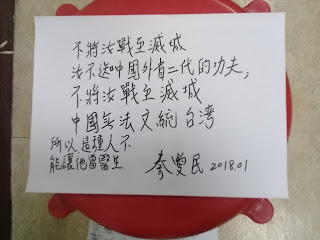 不將汝戰至滅城
汝不送中國外省二代的功夫,
不將汝戰至滅城
中國無法文統台灣
所以這種人不
能讓他當醫生
李曼民 2018.01